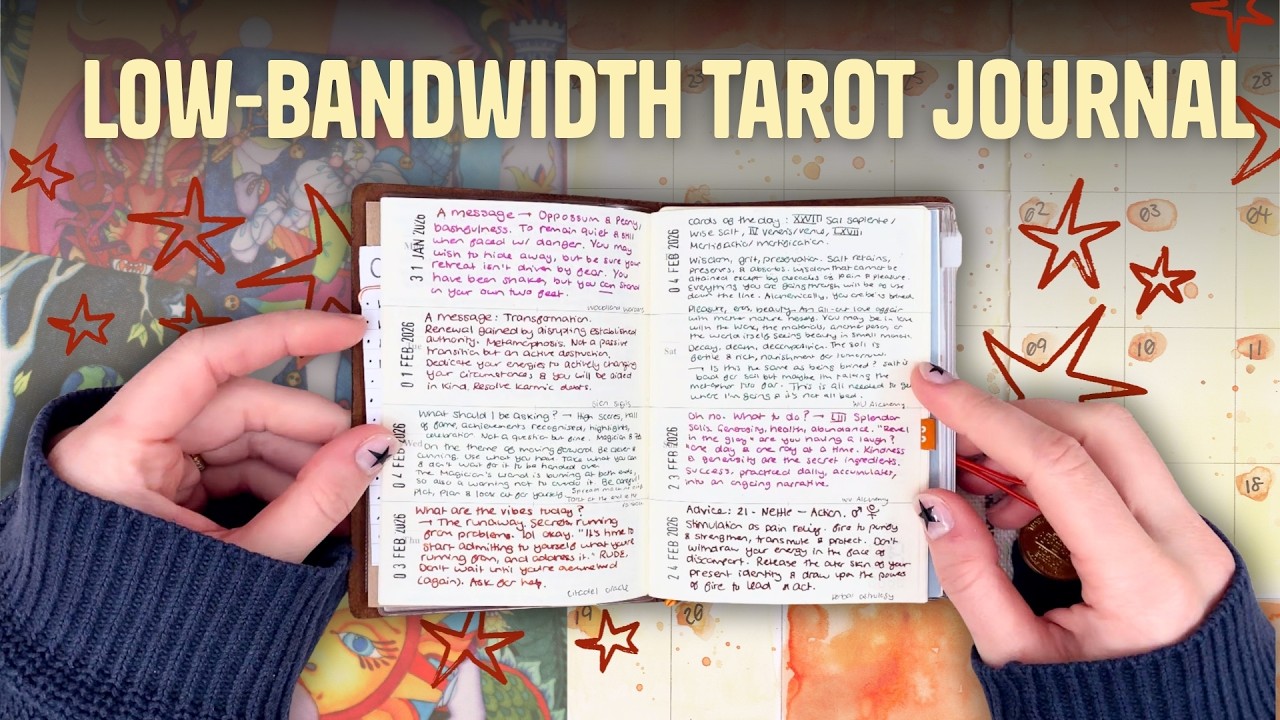 LOW-BANDWIDTH TAROT JOURNAL
31 JAN 2026
A message → Oppossum & Peony,
bashfulness. To remain quiet & still
when faced w/ danger. You may
wish to hide away, but be sure your
retreat isn't driven by fear. You
have been shaken, but you can stand
on your own two feet.
woodland wardens
01 FEB 2026
A message: Transformation.
Renewal gained by disrupting established
authority. Metamorphosis. Not a passive
transition but an active destruction,
Dedicate your energies to actively changing
your circumstances & you will be aided
in kind. Resolve karmic debts.
FEB 2026
Wed
What should I be asking? → High scores, hall
of fame, achievements recognised, highlights,
celebration. Not a question but fine. Magician &
On the theme of moving forward. Be clever &
cunning. Use what you know. Take what you can
& don't wait for it to be handed over.
The Magician's wand is burning at both ends,
so also a warning not to overdo it. Be careful!
Plot, plan & look out for yourself.
03 FEB 2026
Thu
What are the vibes today?
→ The runaway. Secrets, running
from problems. lol okay. "It's time to
start admitting to yourself what you're
running from, and address it." RUDE.
Don't wait until you're overwhelmed
(again). Ask for help.
Citadel oracle
04 FEB 2026
Sat
cards of the day: XXVIII Sal sapiente/
wise salt, IV veneris/venus, LXVIII
Mortificatio/mortification.
Wisdom, grit, preservation. Salt retains,
preserves, & absorbs. Wisdom that cannot be
attained except by decades of pain & pleasure.
Everything you are going through will be of use
down the line. Alchemically, you are being brined.
Pleasure, eros, beauty. An all-out love affair
with mother nature herself. You may be in love
with the work, the materials, another person or
the world itself. Seeing beauty in small minutia.
Decay, death, decomposition. The soil is
fertile & rich, nourishment for tomorrow.
→ Is this the same as being brined? Salt is
bad for soil but maybe I'm taking the
metaphor too far. This is all needed to get
where I'm going & it's not all bad.
WU Alchemy
23 FEB 2026
Oh no. What to do? → LII Splendor
Solis. Generosity, health, abundance. "Revel
in the glory" are you having a laugh?
"one day & one ray at a time. Kindness
& generosity are the secret ingredients.
Success, practiced daily, accumulates,
into an ongoing narrative.
WU Alchemy
24 FEB 2026
Advice: 21 - Nettle - Action. ♂ ♀
Stimulation as pain relief. Fire to purify
& strengthen, transmute & protect. Don't
withdraw your energy in the face of
discomfort. Release the outer skin of your
present identity & draw upon the powers
of fire to lead & act.
28
02
03
04
09
10
11
18
19
20